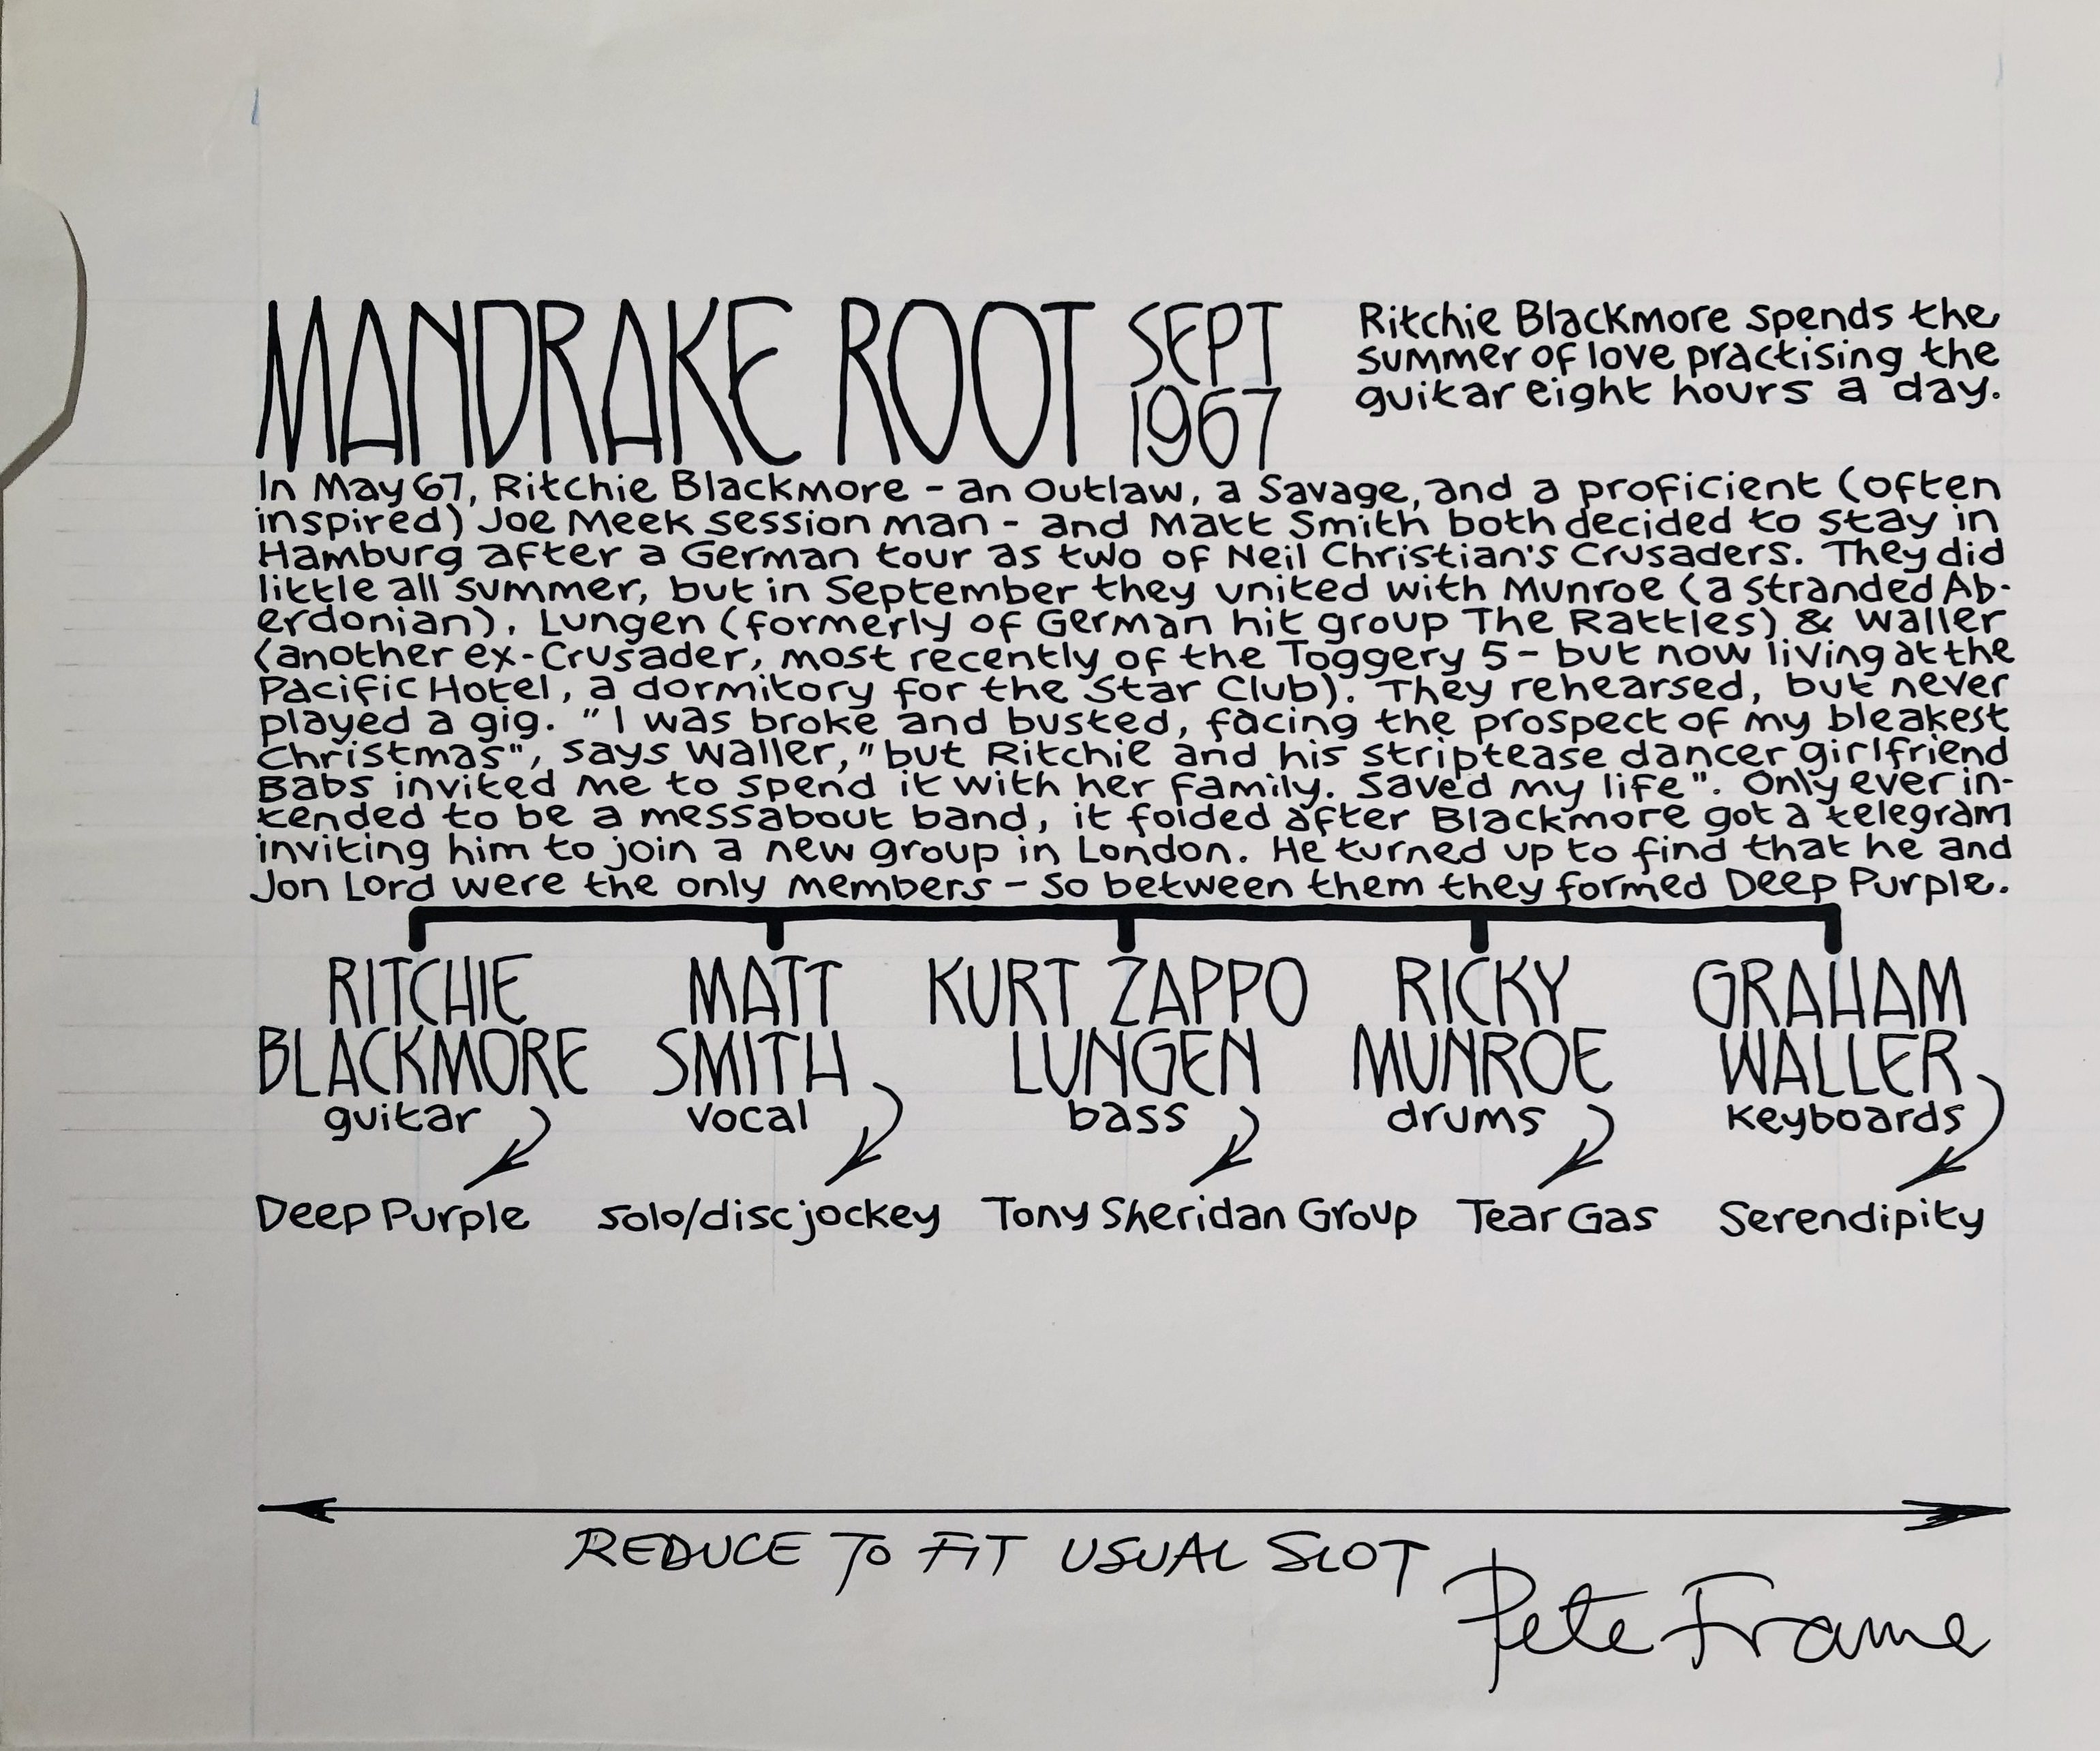 MANDRAKE ROOT SEPT 1967
Ritchie Blackmore spends the
summer of love practising the
guitar eight hours a day.
In May 67, Ritchie Blackmore - an Outlaw, a Savage, and a proficient (often
inspired) Joe Meek session man - and Matt Smith both decided to stay in
Hamburg after a German tour as two of Neil Christian's Crusaders. They did
little all summer, but in September they united with Munroe (a stranded Ab-
erdonian), Lungen (formerly of German hit group The Rattles) & Waller
(another ex-Crusader, most recently of the Toggery 5 - but now living at the
Pacific Hotel, a dormitory for the Star Club). They rehearsed, but never
played a gig. "I was broke and busted, facing the prospect of my bleakest
Christmas", says Waller, "but Ritchie and his striptease dancer girlfriend
Babs invited me to spend it with her family. Saved my life". Only ever in-
tended to be a messabout band, it folded after Blackmore got a telegram
inviting him to join a new group in London. He turned up to find that he and
Jon Lord were the only members - so between them they formed Deep Purple.
RITCHIE BLACKMORE guitar
MATT SMITH vocal
KURT ZAPPO LUNGEN bass
RICKY MUNROE drums
GRAHAM WALLER keyboards
Deep Purple solo/disc jockey Tony Sheridan Group Tear Gas Serendipity
REDUCE TO FIT USUAL SLOT
Pete Frame